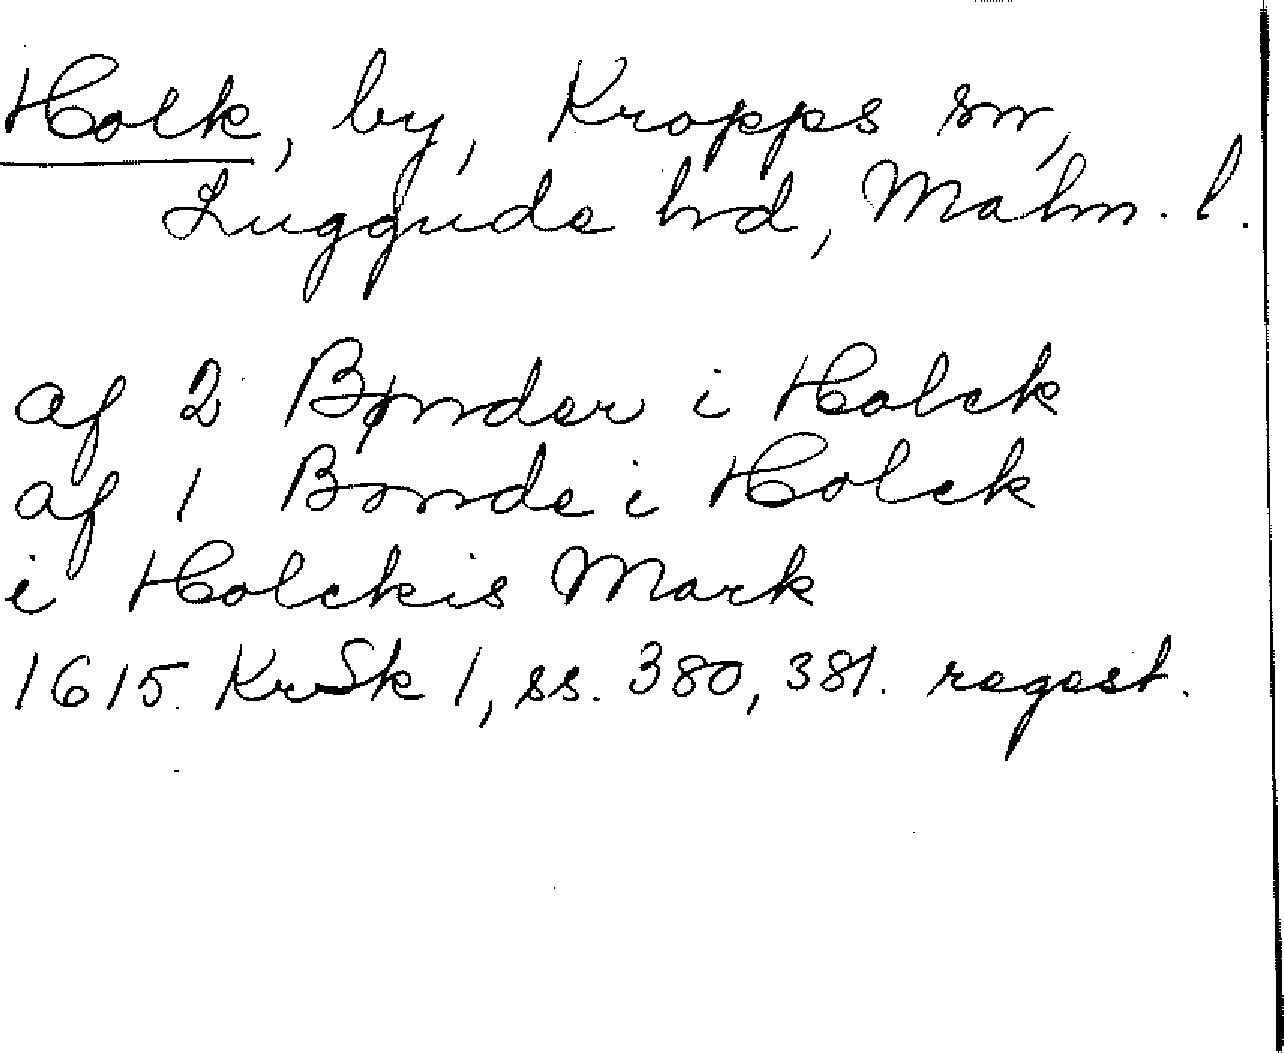 Holk, by, Kropps sn,
Luggude hd, Malm. l.
af 2 Bønder i Holck
af 1 Bonde i Holck
i Holckis Mark
1615 KrSk 1, ss. 380, 381. regest.